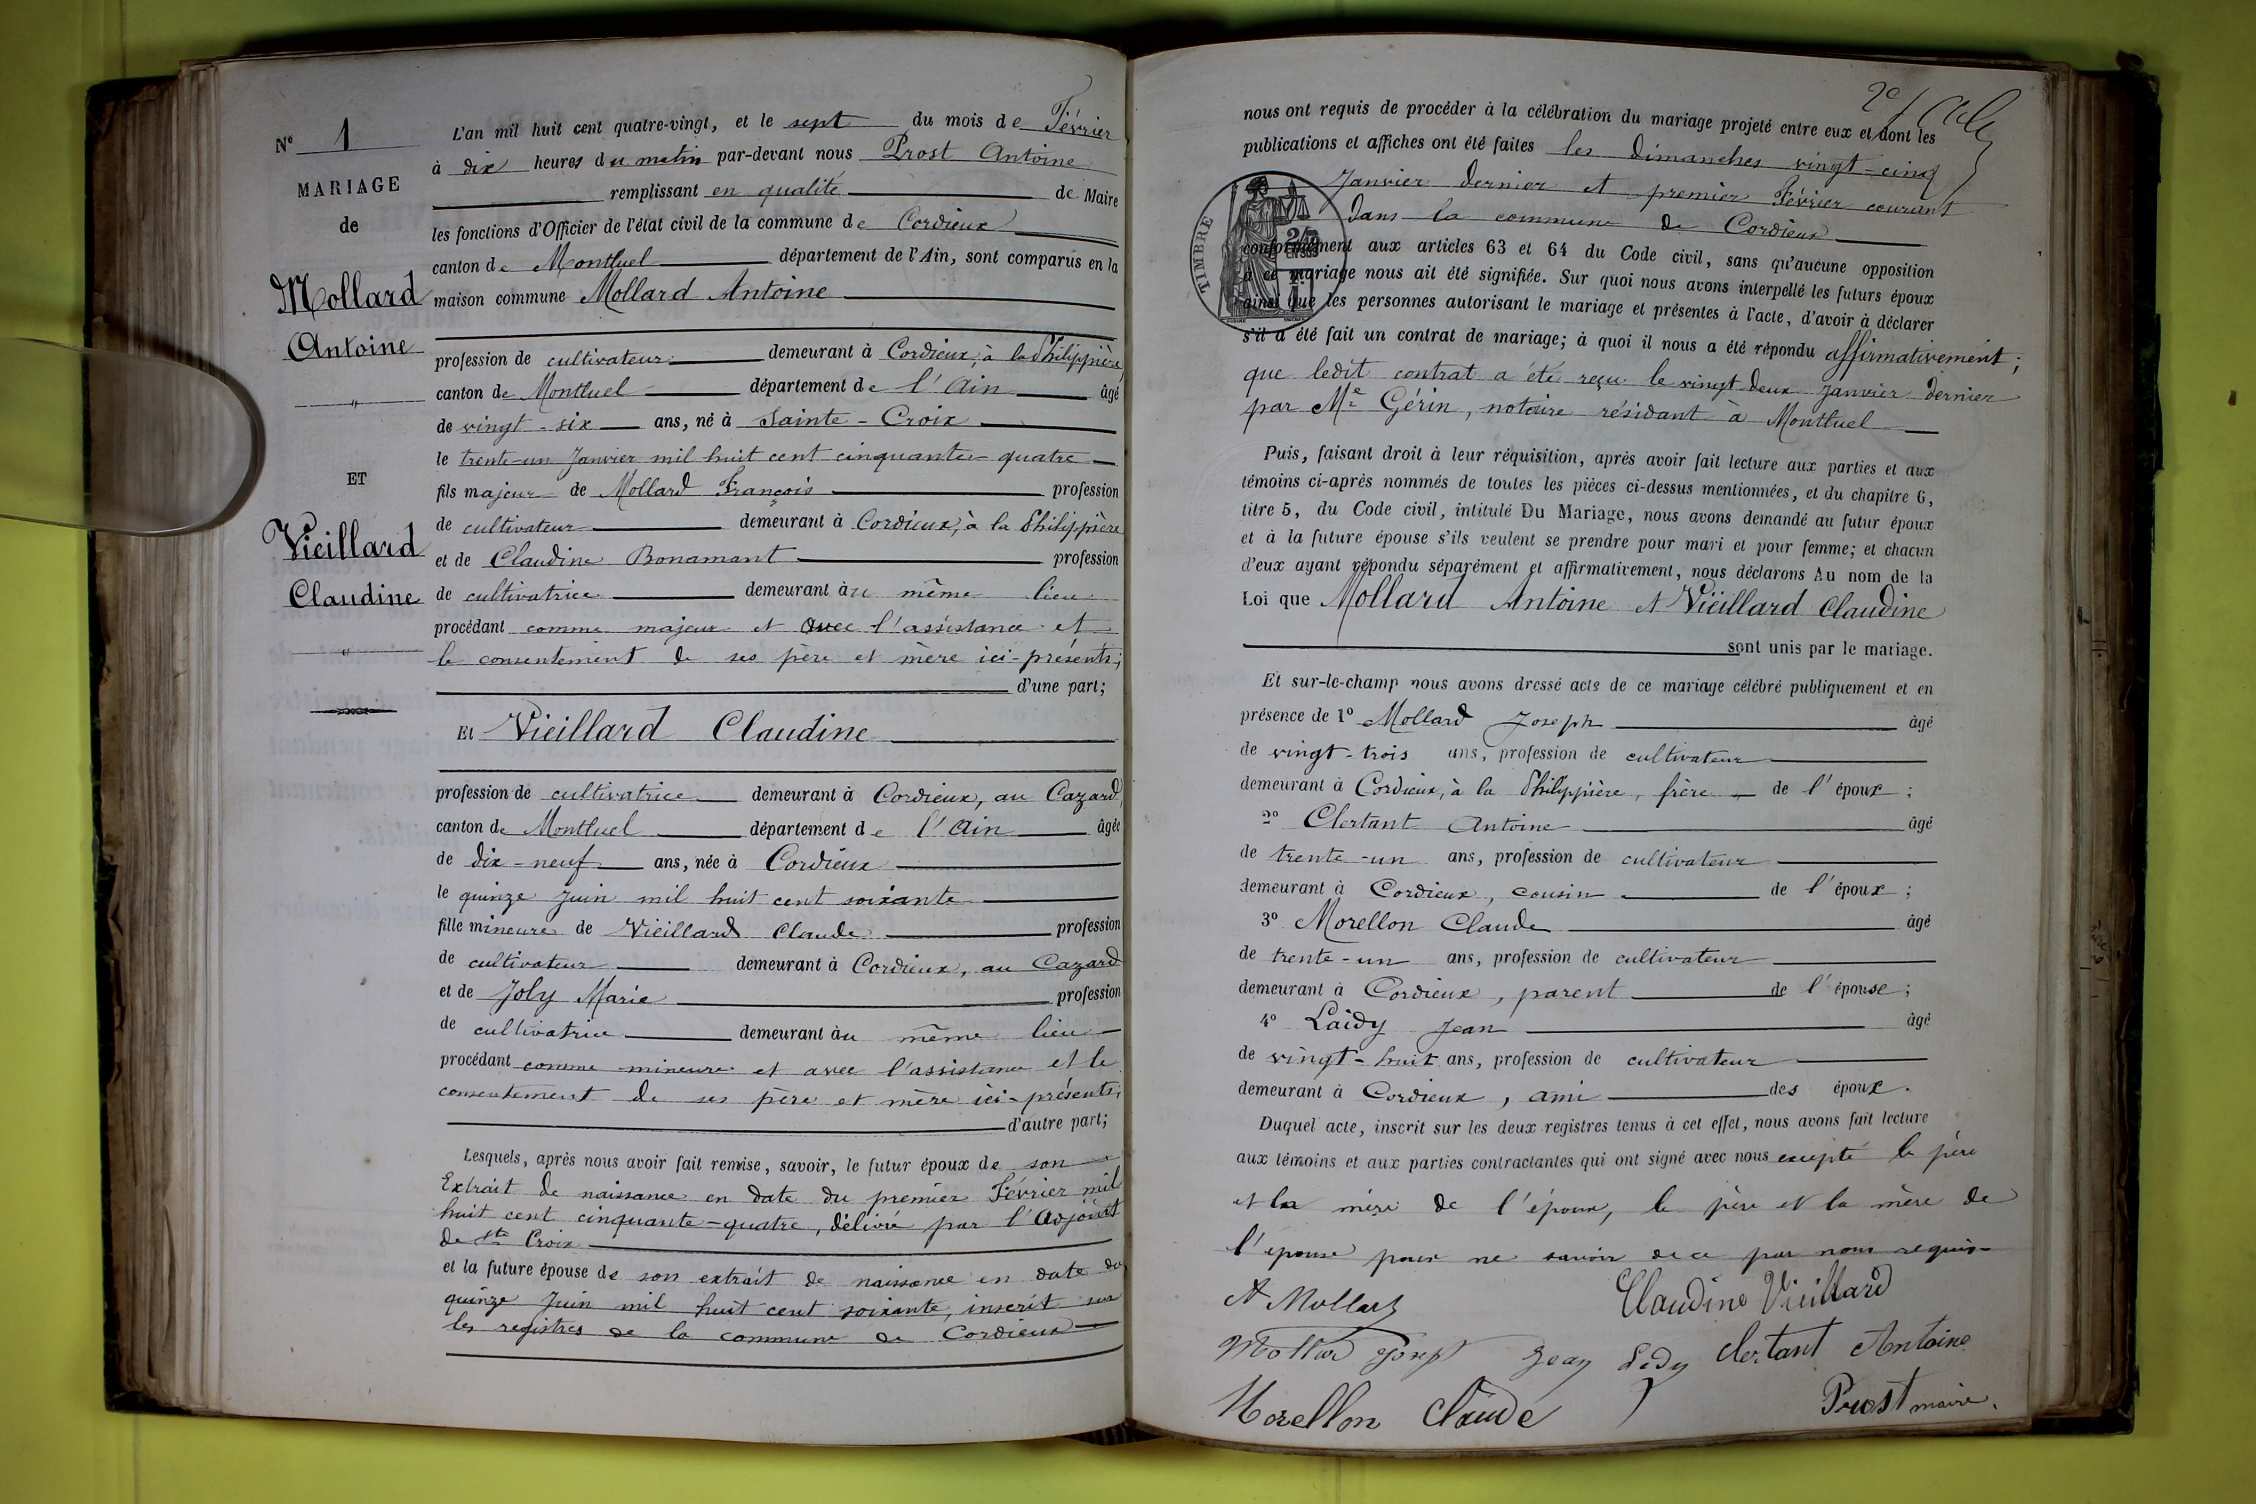 N° 1
MARIAGE
de
Mollard
Antoine
ET
Vieillard
Claudine
L'an mil huit cent quatre-vingt, et le sept du mois de Février
à dix heures du matin par-devant nous Prost Antoine
remplissant en qualité de Maire
les fonctions d'Officier de l'état civil de la commune de Cordieux
canton de Montluel département de l'Ain, sont comparus en la
maison commune Mollard Antoine
profession de cultivateur demeurant à Cordieux, à la Philippière,
canton de Montluel département de l'Ain âgé
de vingt-six ans, né à Sainte-Croix
le trente-un Janvier mil huit cent cinquante-quatre
fils majeur de Mollard François profession
de cultivateur demeurant à Cordieux, à la Philippière
et de Claudine Bonamant profession
de cultivatrice demeurant au même lieu
procédant comme majeur et avec l'assistance et
le consentement de ses père et mère ici-présents;
d'une part;
Et Vieillard Claudine
profession de cultivatrice demeurant à Cordieux, au Cazard,
canton de Montluel département de l'Ain âgée
de dix-neuf ans, née à Cordieux
le quinze Juin mil huit cent soixante
fille mineure de Vieillard Claude profession
de cultivateur demeurant à Cordieux, au Cazard
et de Joly Marie profession
de cultivatrice demeurant au même lieu
procédant comme mineure et avec l'assistance et le
consentement de ses père et mère ici-présents;
d'autre part;
Lesquels, après nous avoir fait remise, savoir, le futur époux de son
Extrait de naissance en date du premier Février mil
huit cent cinquante-quatre, délivré par l'Adjoint
de Ste Croix
et la future épouse de son extrait de naissance en date du
quinze Juin mil huit cent soixante, inscrit sur
les registres de la commune de Cordieux
2e
nous ont requis de procéder à la célébration du mariage projeté entre eux et dont les
publications et affiches ont été faites les dimanches vingt-cinq
Janvier dernier et premier Février courant
dans la commune de Cordieux
TIMBRE
conformément aux articles 63 et 64 du Code civil, sans qu'aucune opposition
à ce mariage nous ait été signifiée. Sur quoi nous avons interpellé les futurs époux
ainsi que les personnes autorisant le mariage et présentes à l'acte, d'avoir à déclarer
s'il a été fait un contrat de mariage; à quoi il nous a été répondu affirmativement;
que ledit contrat a été reçu le vingt deux Janvier dernier
par Me Gérin, notaire résidant à Montluel
Puis, faisant droit à leur réquisition, après avoir fait lecture aux parties et aux
témoins ci-après nommés de toutes les pièces ci-dessus mentionnées, et du chapitre 6,
titre 5, du Code civil, intitulé Du Mariage, nous avons demandé au futur époux
et à la future épouse s'ils veulent se prendre pour mari et pour femme; et chacun
d'eux ayant répondu séparément et affirmativement, nous déclarons Au nom de la
Loi que Mollard Antoine et Vieillard Claudine
sont unis par le mariage.
Et sur-le-champ nous avons dressé acte de ce mariage célébré publiquement et en
présence de 1° Mollard Joseph âgé
de vingt-trois ans, profession de cultivateur
demeurant à Cordieux, à la Philippière, frère de l'époux;
2° Clertant Antoine âgé
de trente-un ans, profession de cultivateur
demeurant à Cordieux, cousin de l'époux;
3° Morellon Claude âgé
de trente-un ans, profession de cultivateur
demeurant à Cordieux, parent de l'épouse;
4° Laidy Jean âgé
de vingt-huit ans, profession de cultivateur
demeurant à Cordieux, ami des époux.
Duquel acte, inscrit sur les deux registres tenus à cet effet, nous avons fait lecture
aux témoins et aux parties contractantes qui ont signé avec nous excepté le père
et la mère de l'époux, le père et la mère de
l'épouse pour ne savoir de ce par nous requis
A Mollard
Claudine Vieillard
Mollard Joseph Jean Lédy Clertant Antoine
Morellon Claude
Prost maire.